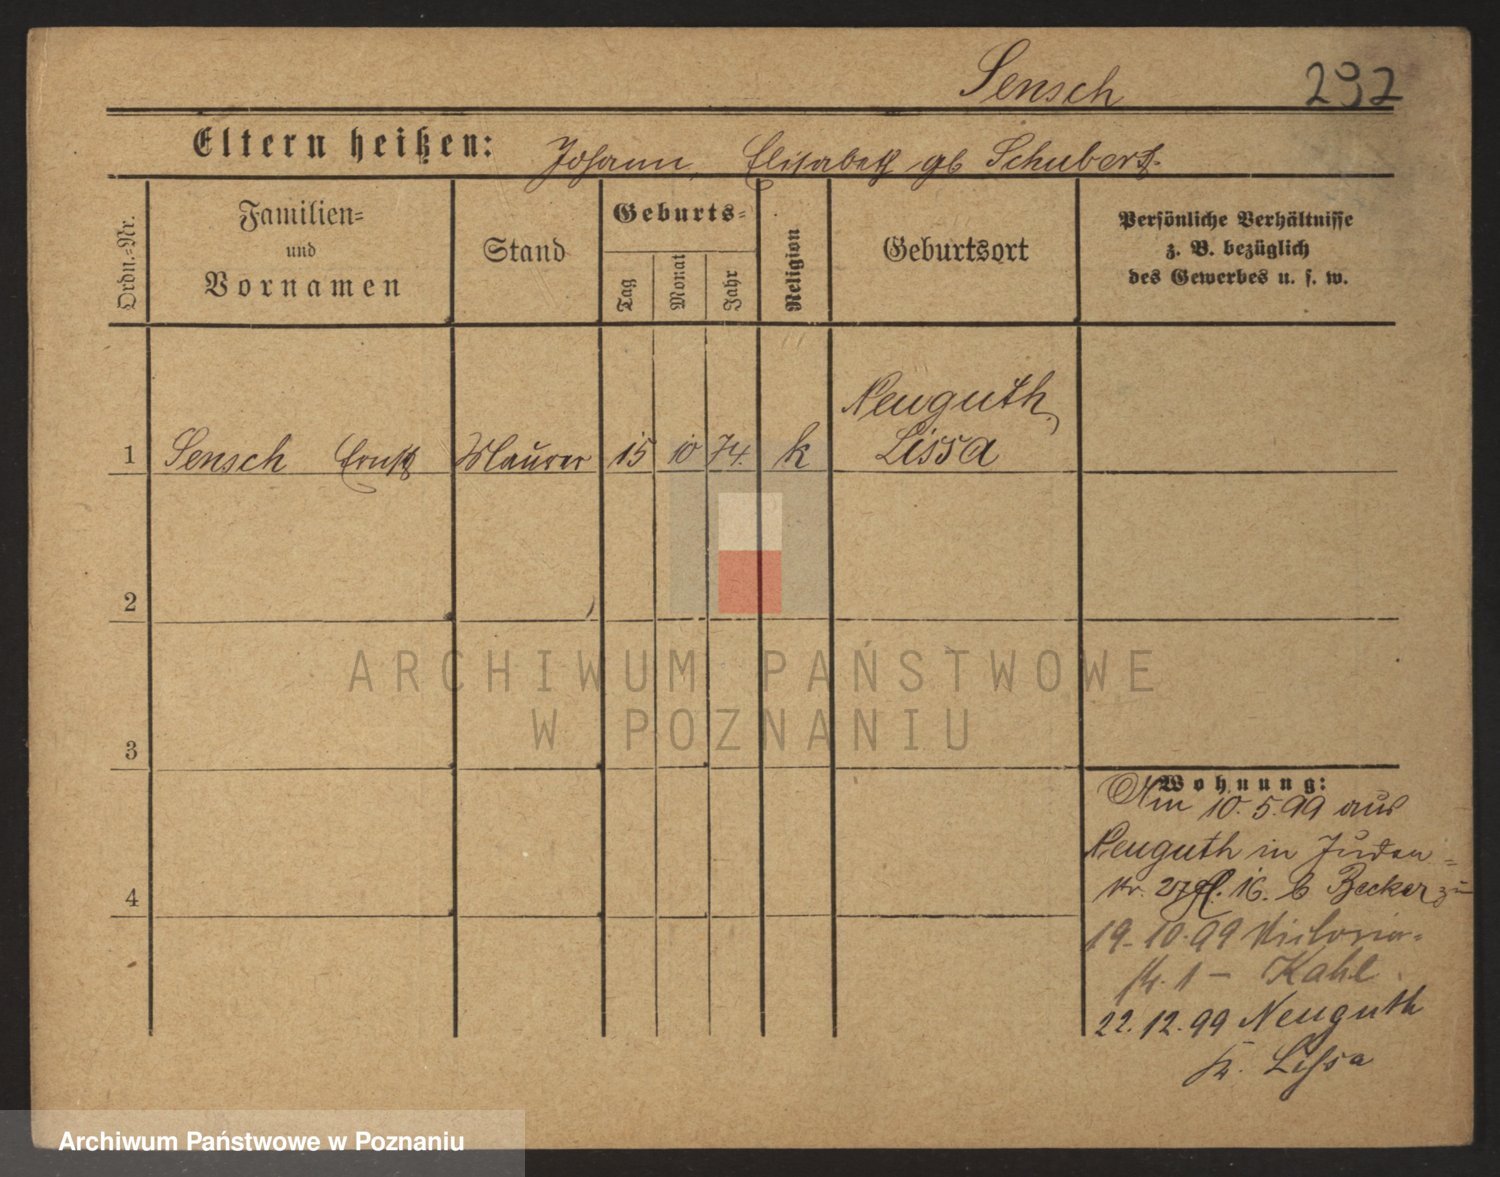 Sensch 292
Eltern heißen: Johann, Elisabeth gb Schubert.
Ordn.-Nr.
Familien-
und
Vornamen
Stand
Geburts-
Tag
Monat
Jahr
Religion
Geburtsort
Persönliche Verhältnisse
z. B. bezüglich
des Gewerbes u. s. w.
Neuguth,
1 Sensch Ernst Maurer 15 10 74. k Lissa
2
3
4
ARCHIWUM PAŃSTWOWE
W POZNANIU
Wohnung:
Am 10.5.99 aus
Neuguth in Juden-
str. 27 16. b Becker zu
19.10.99 Victoria-
str. 1 – Kahl
22.12.99 Neuguth
Kr. Lissa
Archiwum Państwowe w Poznaniu